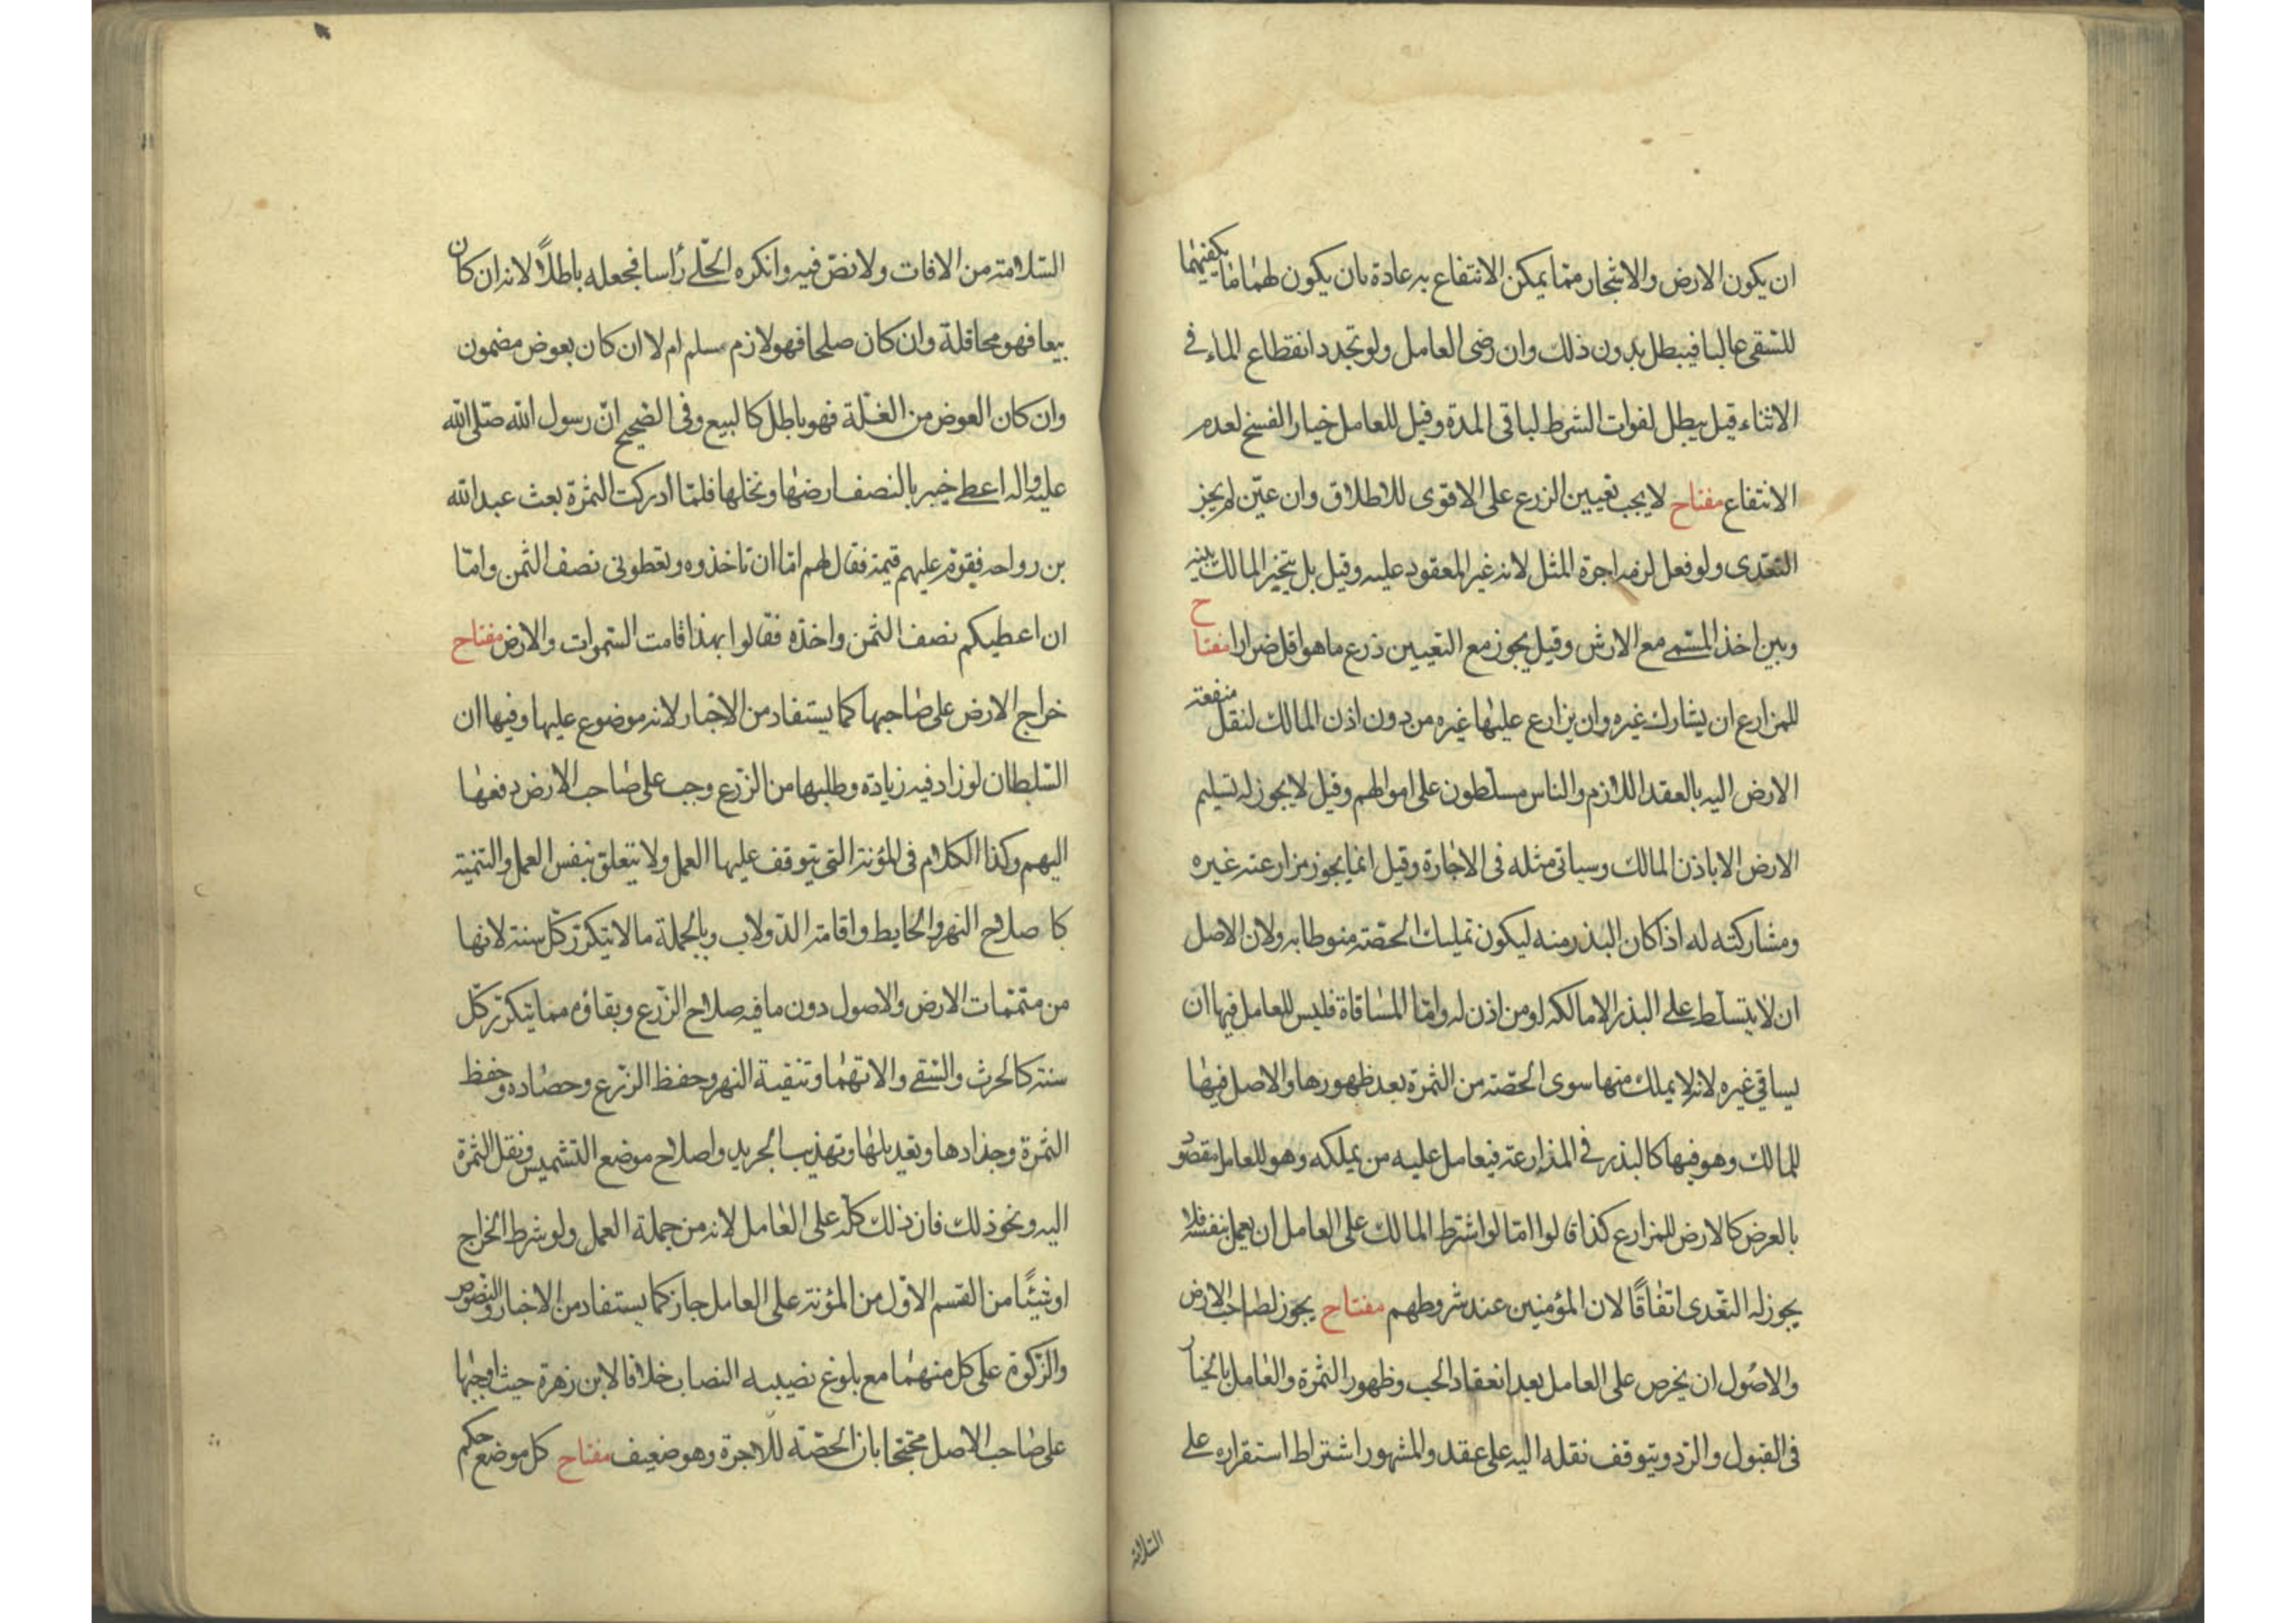 ان يكون الارض والاشجار مما يمكن الانتفاع به عادة بان يكون لهما ما يكفيهما
للسقى غالبا فيبطل بدون ذلك وان رضى العامل ولو تجدد انقطاع الماء فى
الاثناء قيل يبطل لفوات الشرط لباقى المدة وقيل للعامل خيار الفسخ لعدم
الانتفاع مفتاح لا يجب تعيين الزرع على الاقوى للاطلاق وان عيّن لم يجز
التعدى ولو فعل لزمه اجرة المثل لانه غير المعقود عليه وقيل بل يتخير المالك بينه
وبين اخذ المسمى مع الارش وقيل يجوز مع التعيين زرع ما هو اقل ضرارا مفتاح
للمزارع ان يشارك غيره وان يزارع عليها غيره من دون اذن المالك لنقل منفعة
الارض اليه بالعقد اللازم والناس مسلطون على اموالهم وقيل لا يجوز له تسليم
الارض الا باذن المالك وسياتى مثله فى الاجارة وقيل انما يجوز مزارعته غيره
ومشاركته له اذا كان البذر منه ليكون تمليك الحصّة منوطا به ولان الاصل
ان لا يتسلط على البذر الا مالكه او من اذن له وامّا المساقاة فليس للعامل فيها ان
يساقى غيره لانه لا يملك منها سوى الحصّة من الثمرة بعد ظهورها والاصل فيها
للمالك وهو فيها كالبذر فى المزارعة فيعامل عليه من يملكه وهو للعامل مقصود
بالعرض كالارض للمزارع كذا قالوا امّا لو اشترط المالك على العامل ان يعمل بنفسه فلا
يجوز له التعّدى اتفاقًا لان المؤمنين عند شروطهم مفتاح يجوز لصاحب الارض
والاصول ان يخرص على العامل بعد انعقاد الحب وظهور الثمرة والعامل بالخيار
فى القبول والرّد ويتوقف نقله اليه على عقد والمشهور اشتراط استقراره على
السّلامة
السّلامة من الافات ولا نصّ فيه وانكره الحلّى رأسا فجعله باطلاً لانه ان كان
بيعا فهو محاقلة وان كان صلحا فهو لازم مسلم ام لا ان كان بعوض مضمون
وان كان العوض من الغلّة فهو باطل كالبيع وفى الصحيح انّ رسول الله صلّى الله
عليه واله اعطى خيبر بالنصف ارضها ونخلها فلمّا ادركت الثمرة بعث عبد الله
بن رواحه فيقوّم عليهم قيمة فقال لهم امّا ان تاخذوه وتعطونى نصف الثمن وامّا
ان اعطيكم نصف الثمن واخذه فقالوا بهذا قامت السّموات والارض مفتاح
خراج الارض على صاحبها كما يستفاد من الاخبار لانه موضوع عليها وفيها ان
السّلطان لو زاد فيه زيادة وطلبها من الزّرع وجب على صاحب الارض دفعها
اليهم وكذا الكلام فى المؤنة التى يتوقف عليها العمل ولا يتعلق بنفس العمل والتنمية
كاصلاح النهر والحايط واقامة الدّولاب وبالجملة ما لا يتكرّر كلّ سنة لانها
من متمّمات الارض والاصول دون ما فيه صلاح الزّرع وبقاؤه مما يتكرّر كلّ
سنة كالحرث والسّقى والاتهما وتنقية النهر وحفظ الزّرع وحصاده وحفظ
الثمرة وجذادها وتعديلها وتهذيب الجريد واصلاح موضع التشميس ونقل الثمرة
اليه ونحو ذلك فان ذلك كلّه على العامل لانه من جملة العمل ولو شرط الخراج
او شيئًا من القسم الاوّل من المؤنة على العامل جاز كما يستفاد من الاخبار والنصوص
والزّكوة على كل منهما مع بلوغ نصيبه النصاب خلافا لابن زهرة حيث اوجبها
على صاحب الاصل محتجّا بان الحصّة للاجرة وهو ضعيف مفتاح كل موضع حكم